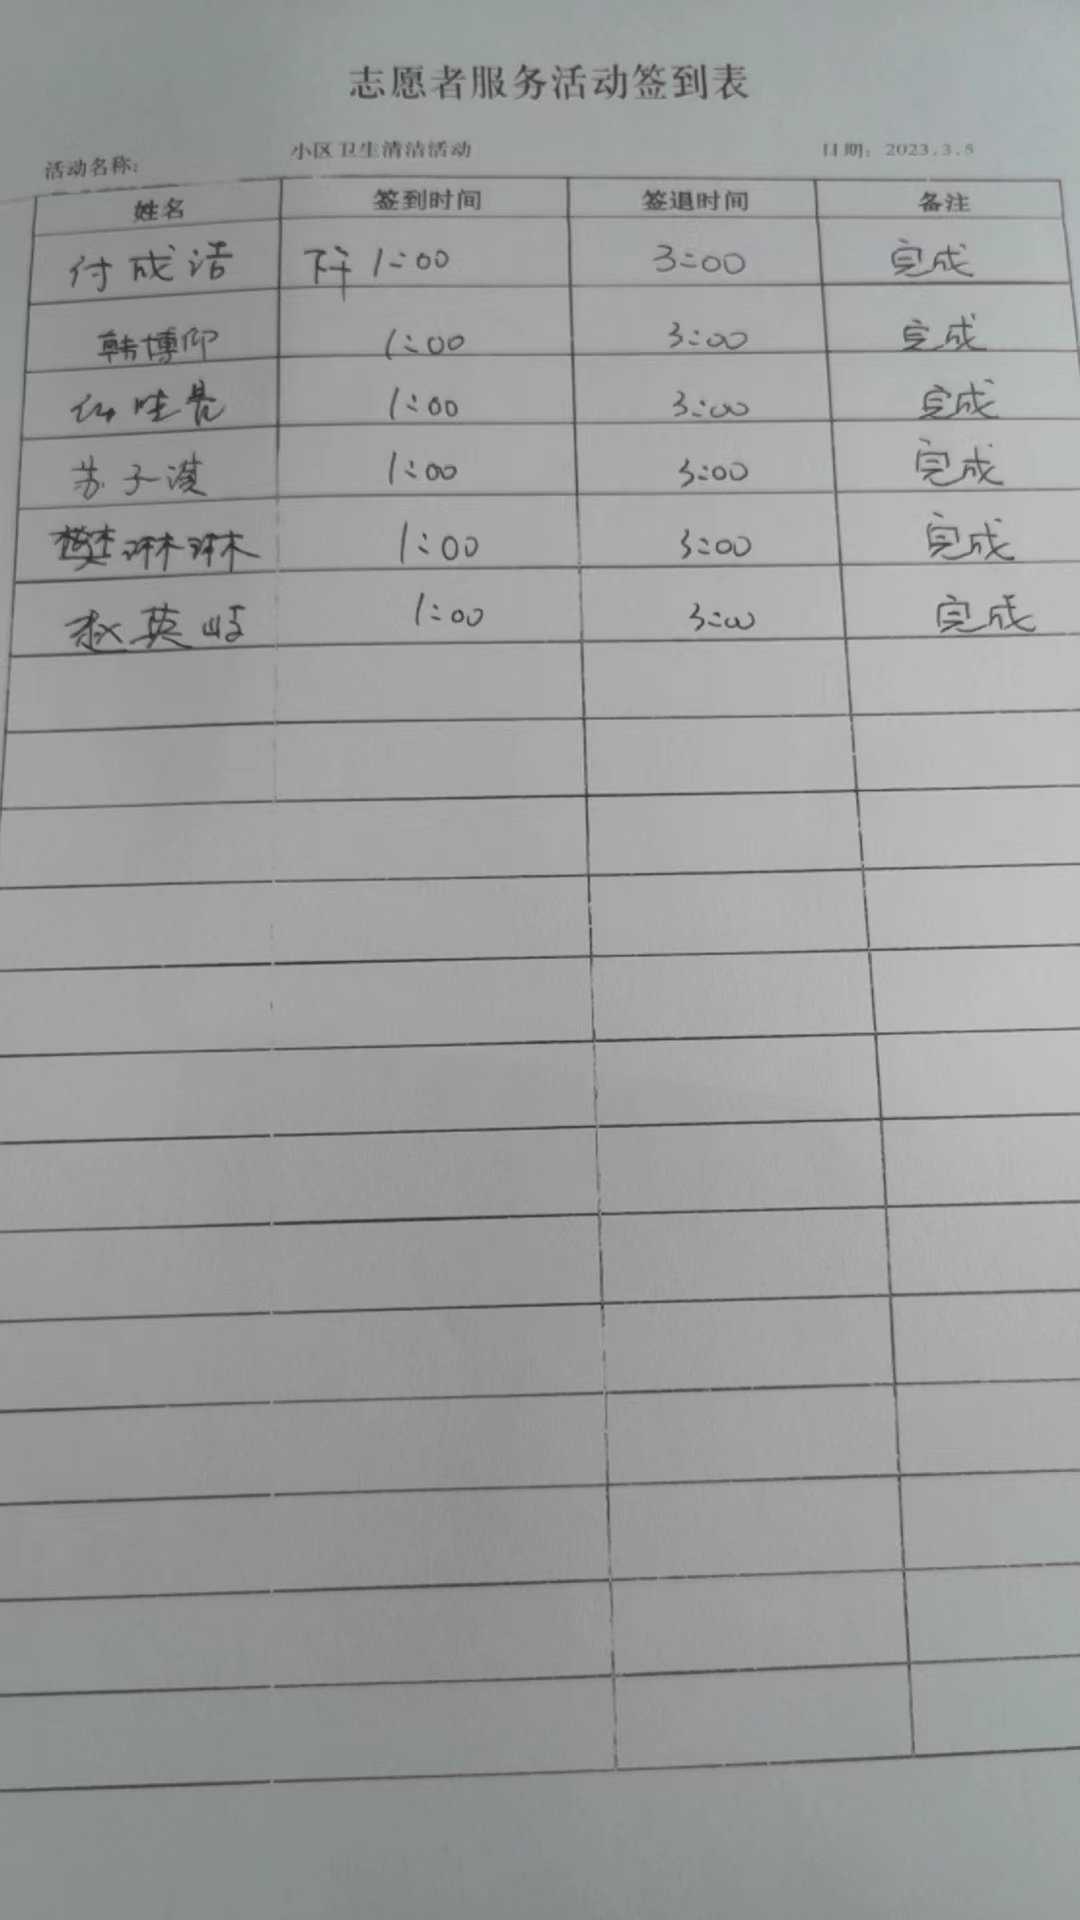 志愿者服务活动签到表
活动名称: 小区卫生清洁活动 日期: 2023.3.5
姓名 签到时间 签退时间 备注
付成洁 下午 1:00 3:00 完成
韩博仰 1:00 3:00 完成
1:00 3:00 完成
苏子淇 1:00 3:00 完成
樊琳琳 1:00 3:00 完成
赵英岐 1:00 3:00 完成